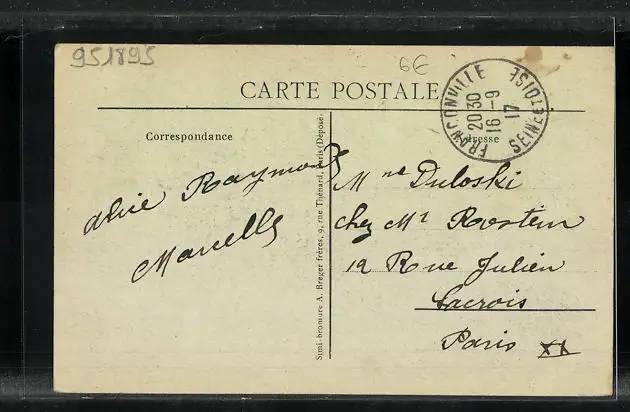 951895
6€
CARTE POSTALE
FRANCONVILLE
20 30
16 - 9
17
SEINE ET OISE
Correspondance
Adresse
Alice Raymond
Marcelle
Simi-bromure A. Breger frères, 9, rue Thénard, Paris (Déposé)
Mme Duloski
chez Mr Rostein
12 Rue Julien
Lacrois
Paris